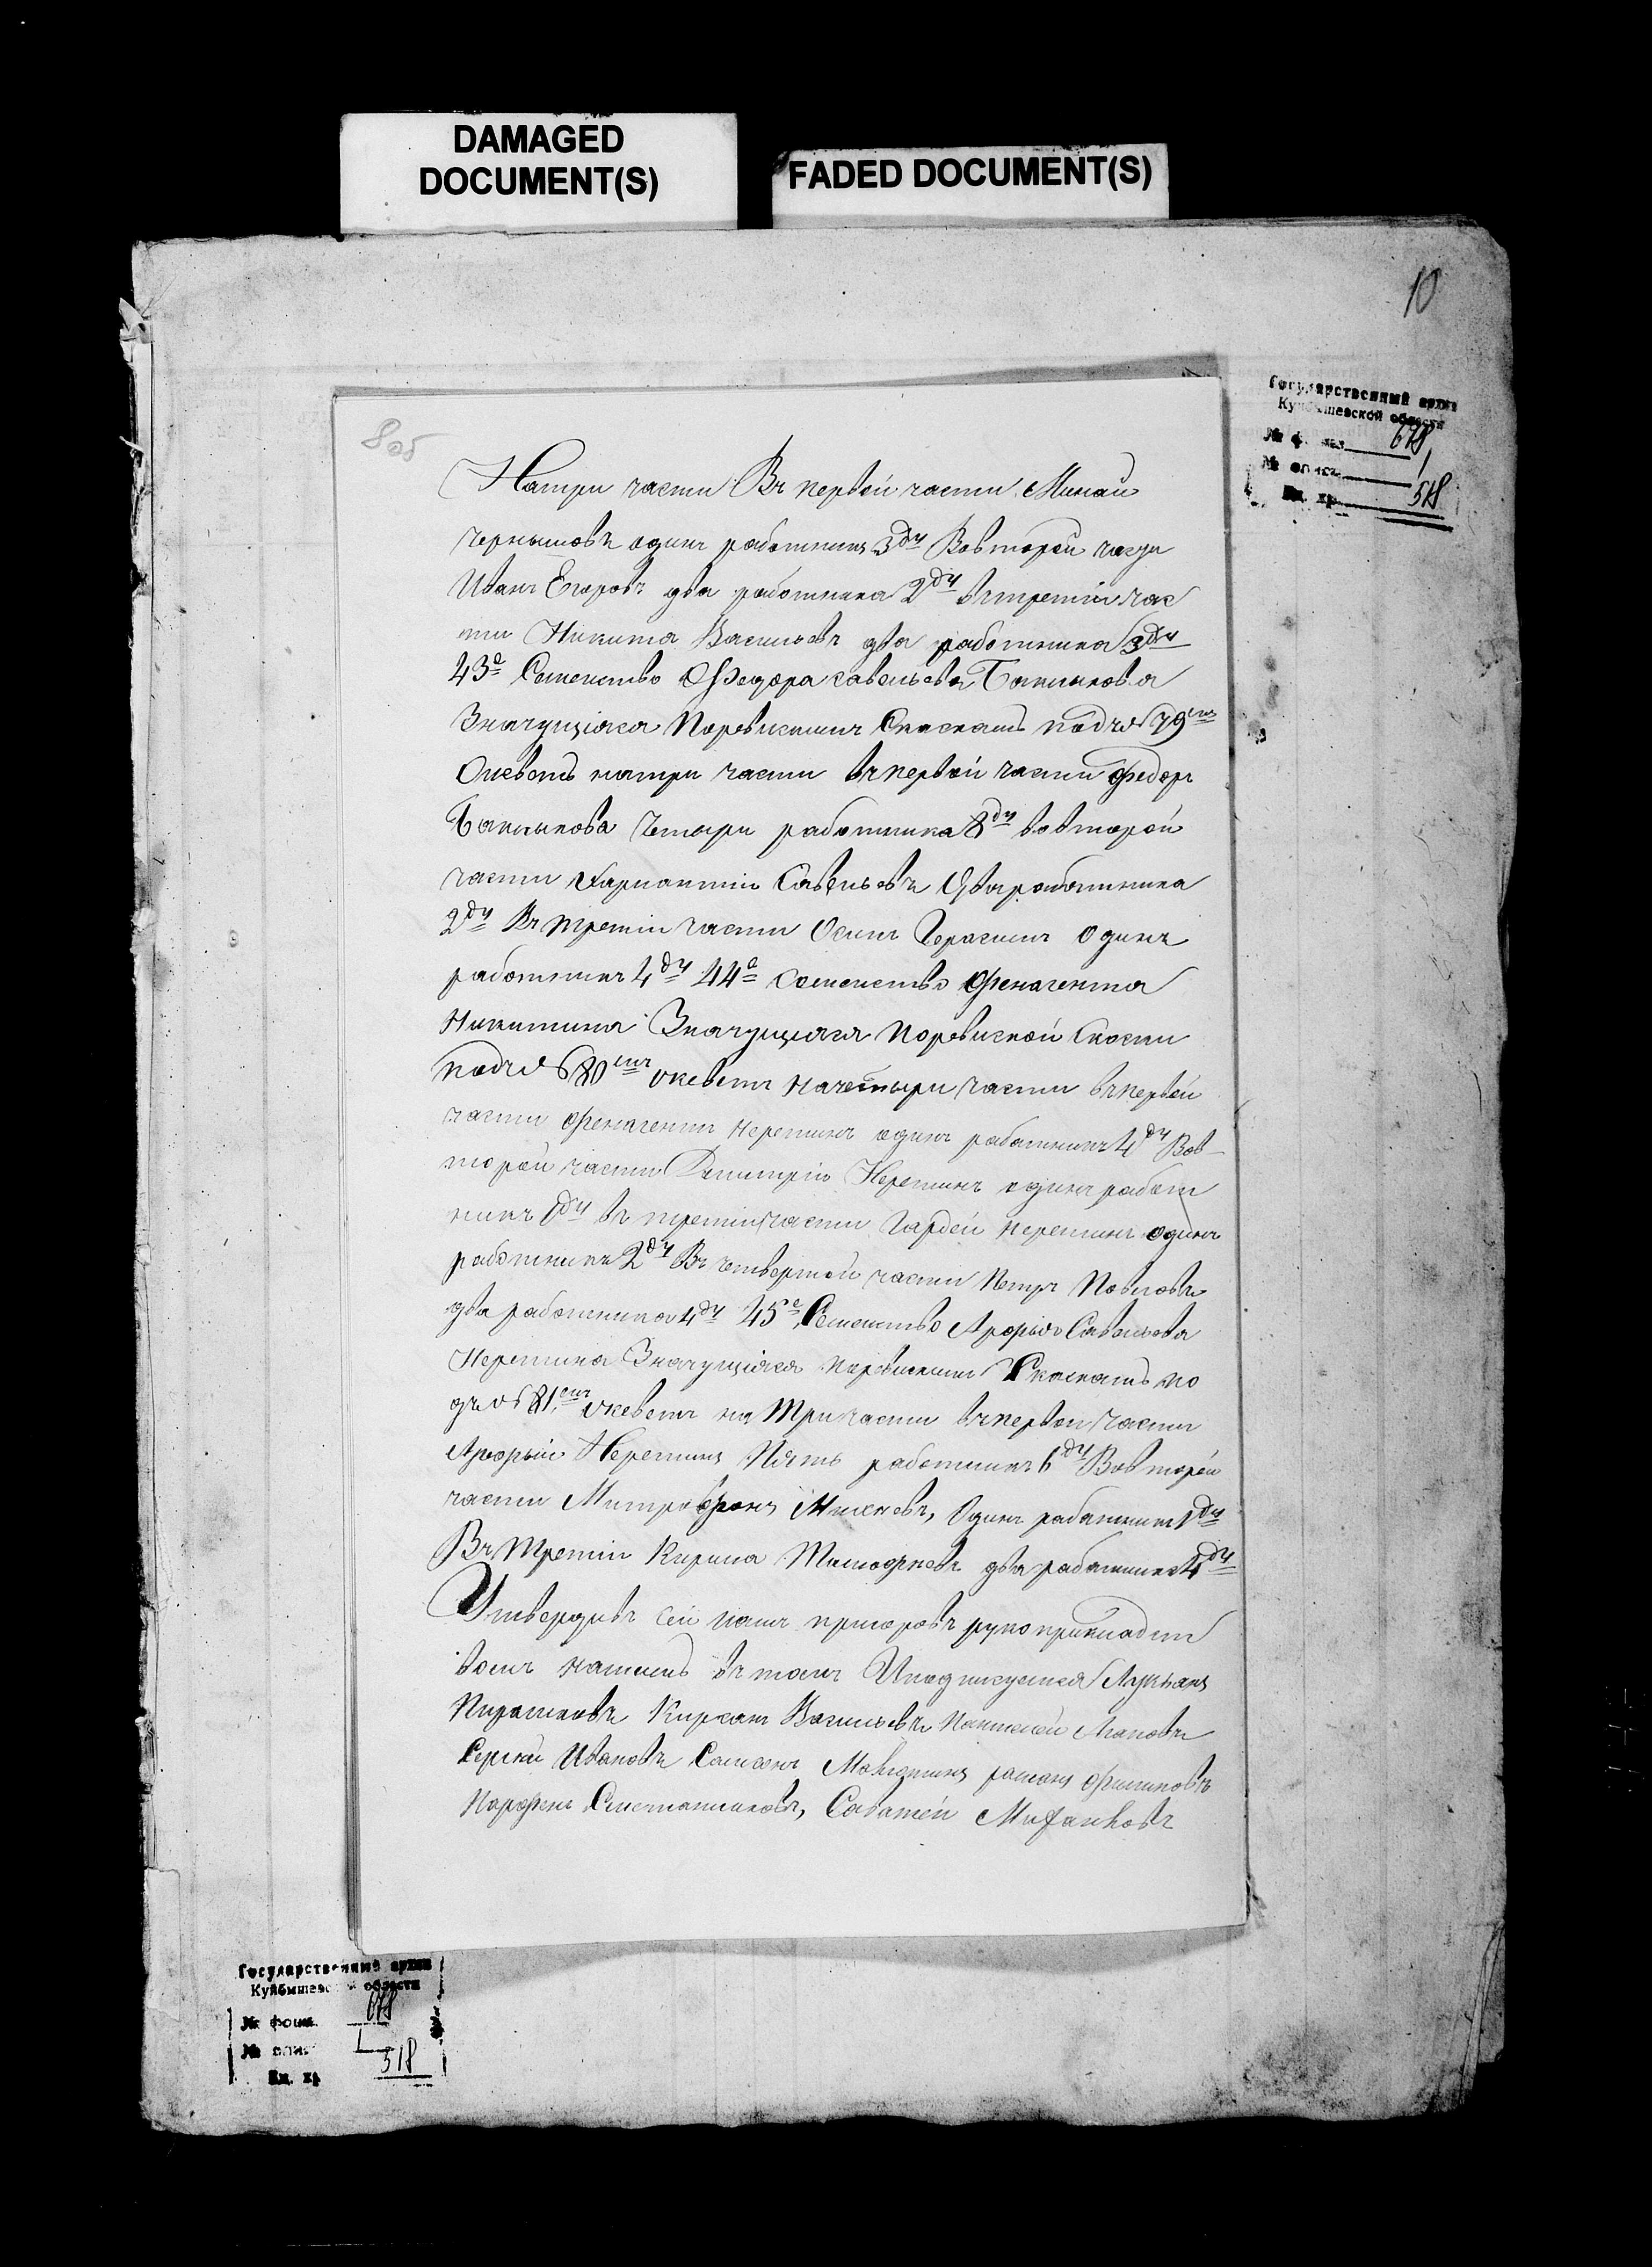 DAMAGED
DOCUMENT(S)
FADED DOCUMENT(S)
10
Государственный архив
Куйбышевской области
№ ф 678
№ опись 1
Ед. хр. 518
8 об
Натри части Въ первой части Минай
Чернышовъ одинъ работникъ 3 ду Вовторой части
Иванъ Егоровъ два работника 2 ду втретiй час
ти Никита Васильевъ два работника 3 ду
43е Семейство Федора савельева Баклыкова
Значущiяся Поревискимъ Сказкамъ подъ № 79 емъ
натри части въпервой части федоръ
Баклыкова четыри работника 8 ду вовторой
части Савельевъ Дваработника
2 ду Въ третiи части Осипъ Герасимъ одинъ
работникъ 4 ду 44е семейство Финагента
Никитина Значущияся поревиской Скаски
подъ № 80 емъ начетыри части въпервой
части Финагентъ нерешинъ одинъ работникъ 4 ду Вов
торой части Димитрiй Нерешинъ одинъ работ
никъ 1 ду въ третiи части Гордей нерешинъ одинъ
работникъ 2 ду Въ четвертой части Петръ Повловъ
два работника 4 ду 45е Семейство Савельева
Нерешина Значущiяся поревискимъ Сказкамъ по
дъ № 81 емъ на Три части въпервой части
Нерешинъ Пять работникъ 6 ду Вовторой
части Митрофонъ Михневъ, Одинъ работникъ 1 ду
Въ Третiи Кирила Тимофеевъ два работника 4 ду
Утвердивъ сей нашъ приговоръ рукоприкладст
вомъ нашимъ въ томъ Иподписуемся Лукьянъ
Васильевъ
Сергей Ивановъ Самсонъ романъ Филиповъ
Парфенъ Саватей
Государственный архив
Куйбышевской области
№ фонд. 678
№ опис. 1
Ед. хр. 518